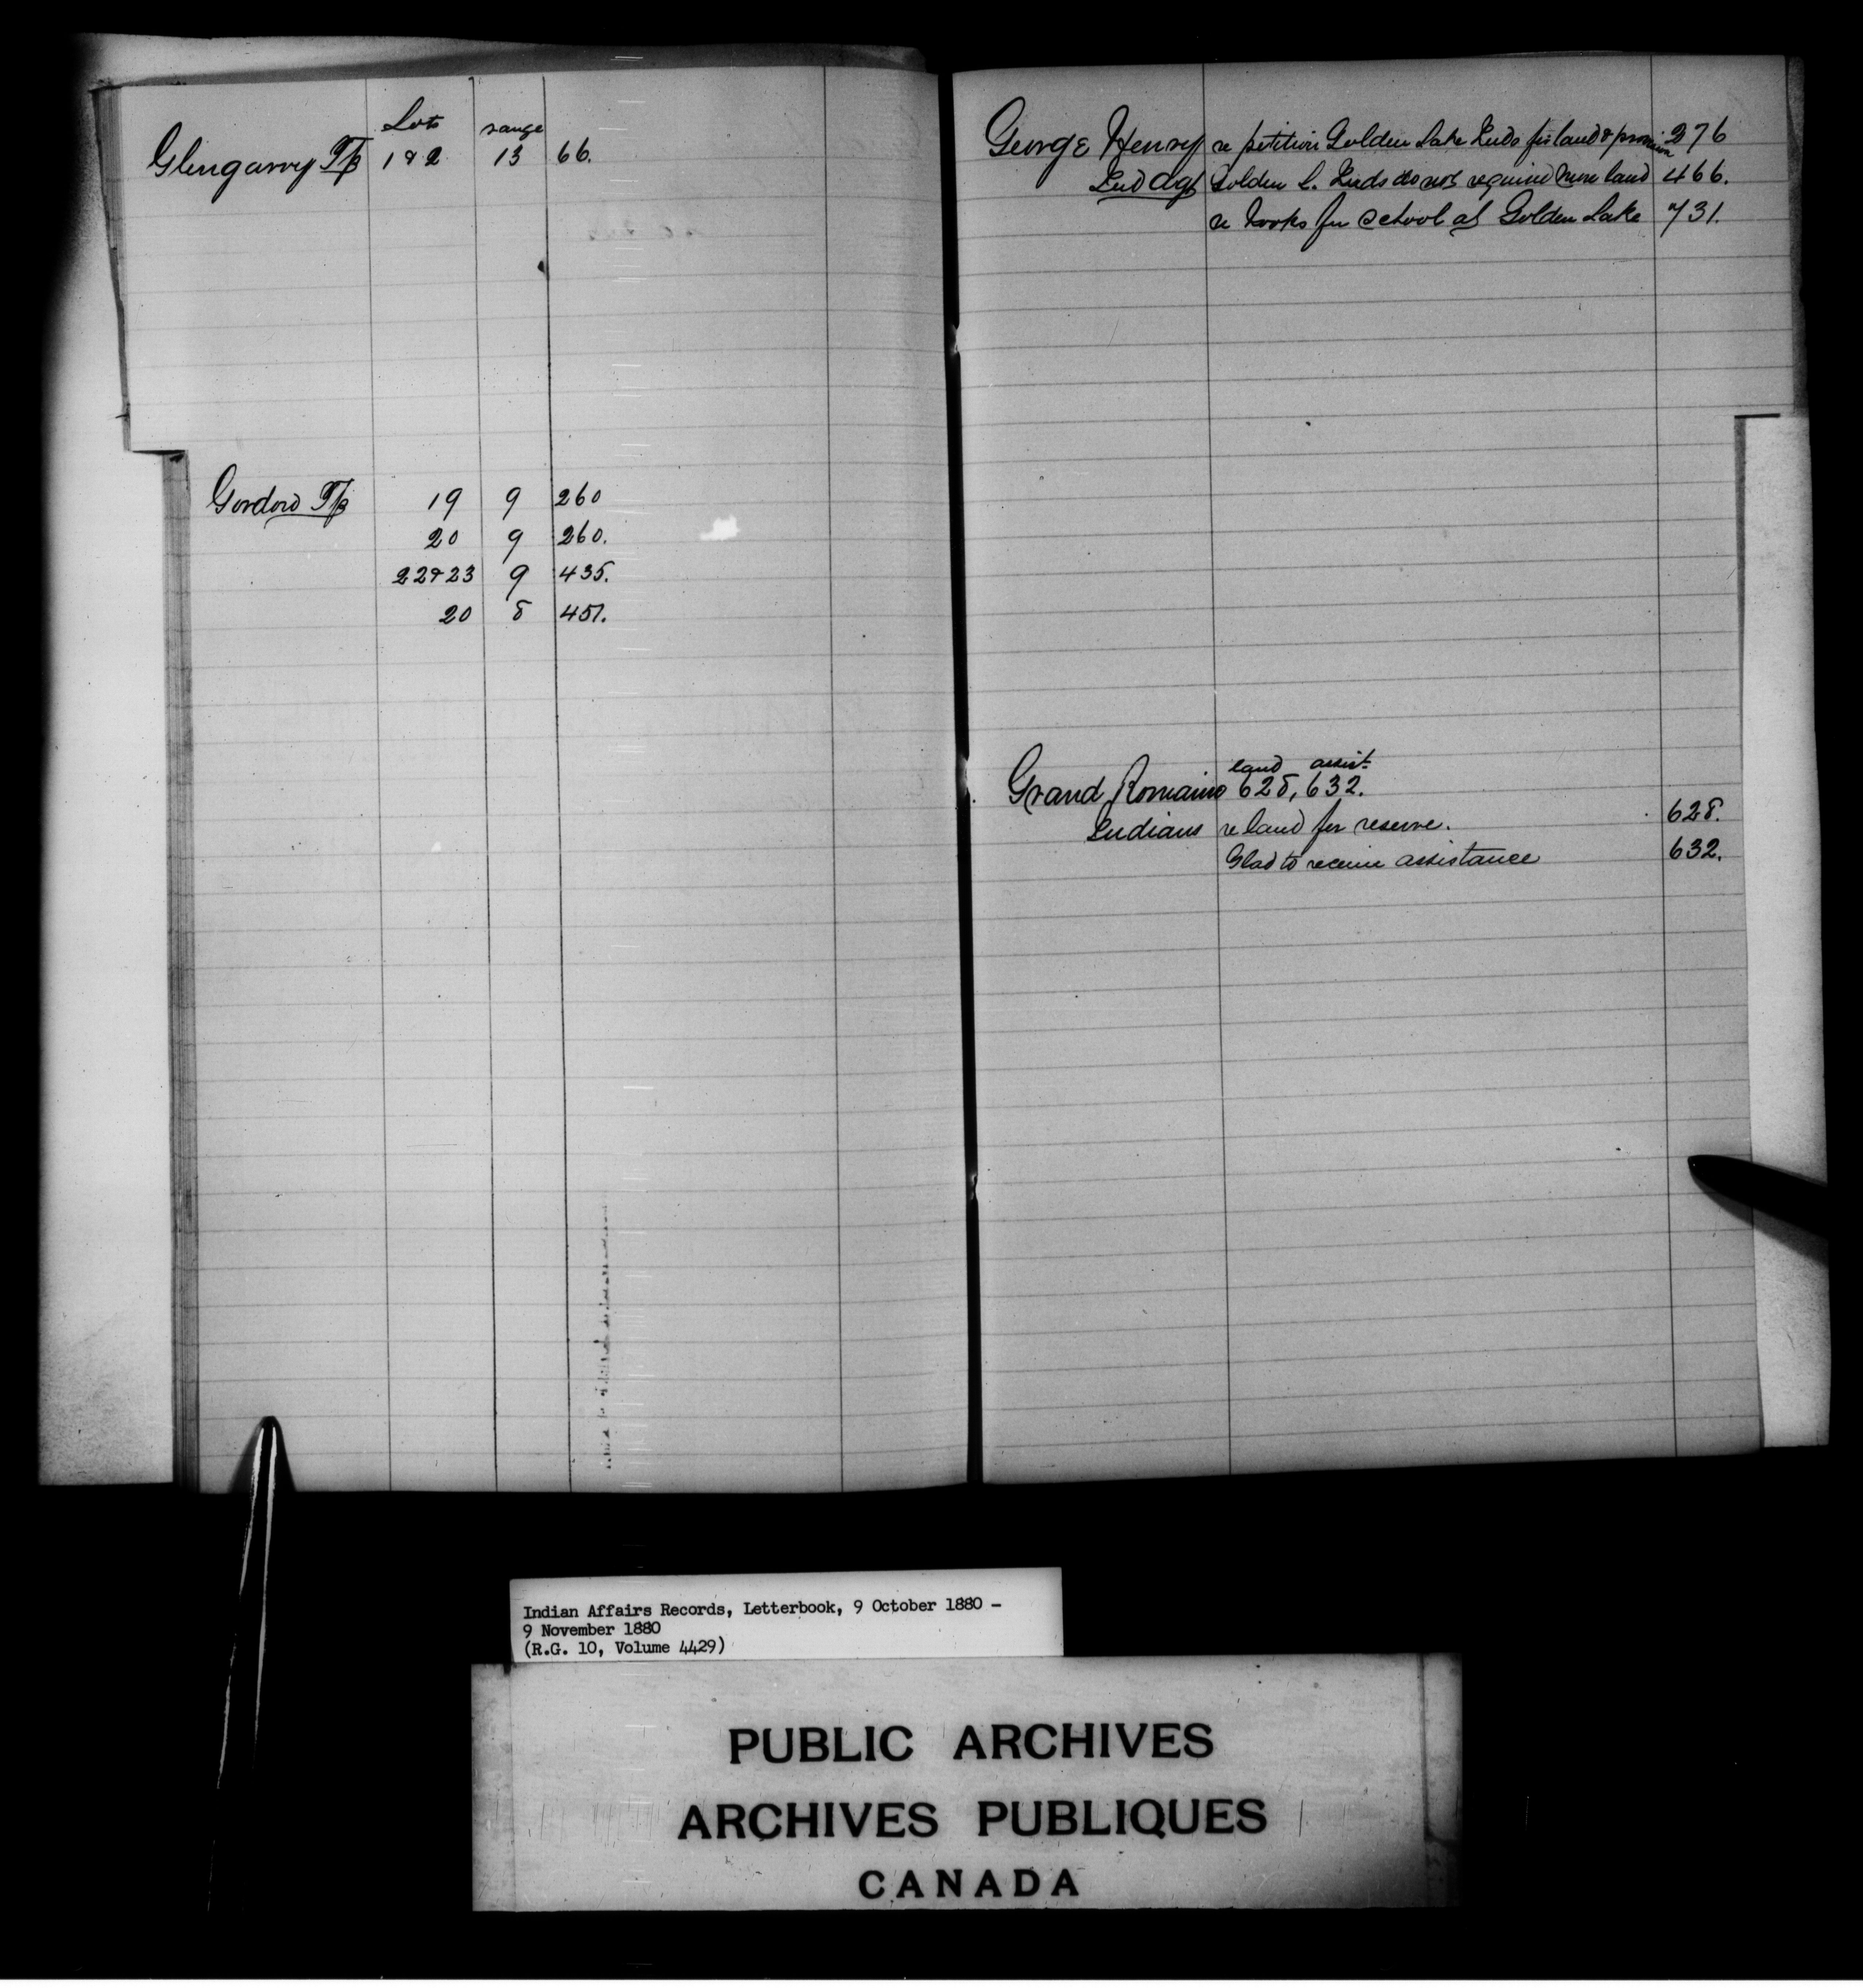 Lots range
Glengarry Tp 1 & 2 13 66.
Gordon Tp 19 9 260
20 9 260.
22 & 23 9 435.
20 8 451.
George Henry re petition Golden Lake Inds for land & provision 276
Ind Agt Golden L. Inds do not require more land 466.
re books for school at Golden Lake 731.
land assist.
Grand Romaine 628, 632.
Indians re land for reserve. 628.
Glad to receive assistance 632.
Indian Affairs Records, Letterbook, 9 October 1880 -
9 November 1880
(R.G. 10, Volume 4429)
PUBLIC ARCHIVES
ARCHIVES PUBLIQUES
CANADA